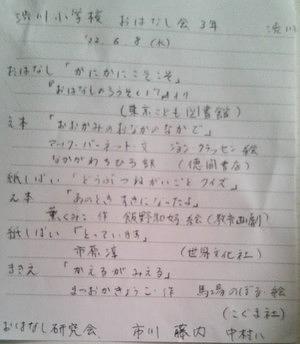 渋川小学校 おはなし会 3年 渋川
'22.6.8(水)
おはなし「かにかにこそこそ」
『おはなしのろうそく17』より
(東京こども図書館)
え本「おおかみのおなかのなかで」
マック・バーネット・文 ジョン・クラッセン・絵
なかがわちひろ訳 (徳間書店)
紙しばい「どうぶつねがいごとクイズ」
え本「あのときすきになったよ」
薫くみこ・作 飯野和好・絵(教育画劇)
紙しばい「とっています」
市原淳 (世界文化社)
さきえ「かえるがみえる」
まつおかきょうこ・作 馬場のぼる・絵
(こぐま社)
おはなし研究会 市川 藤内 中村